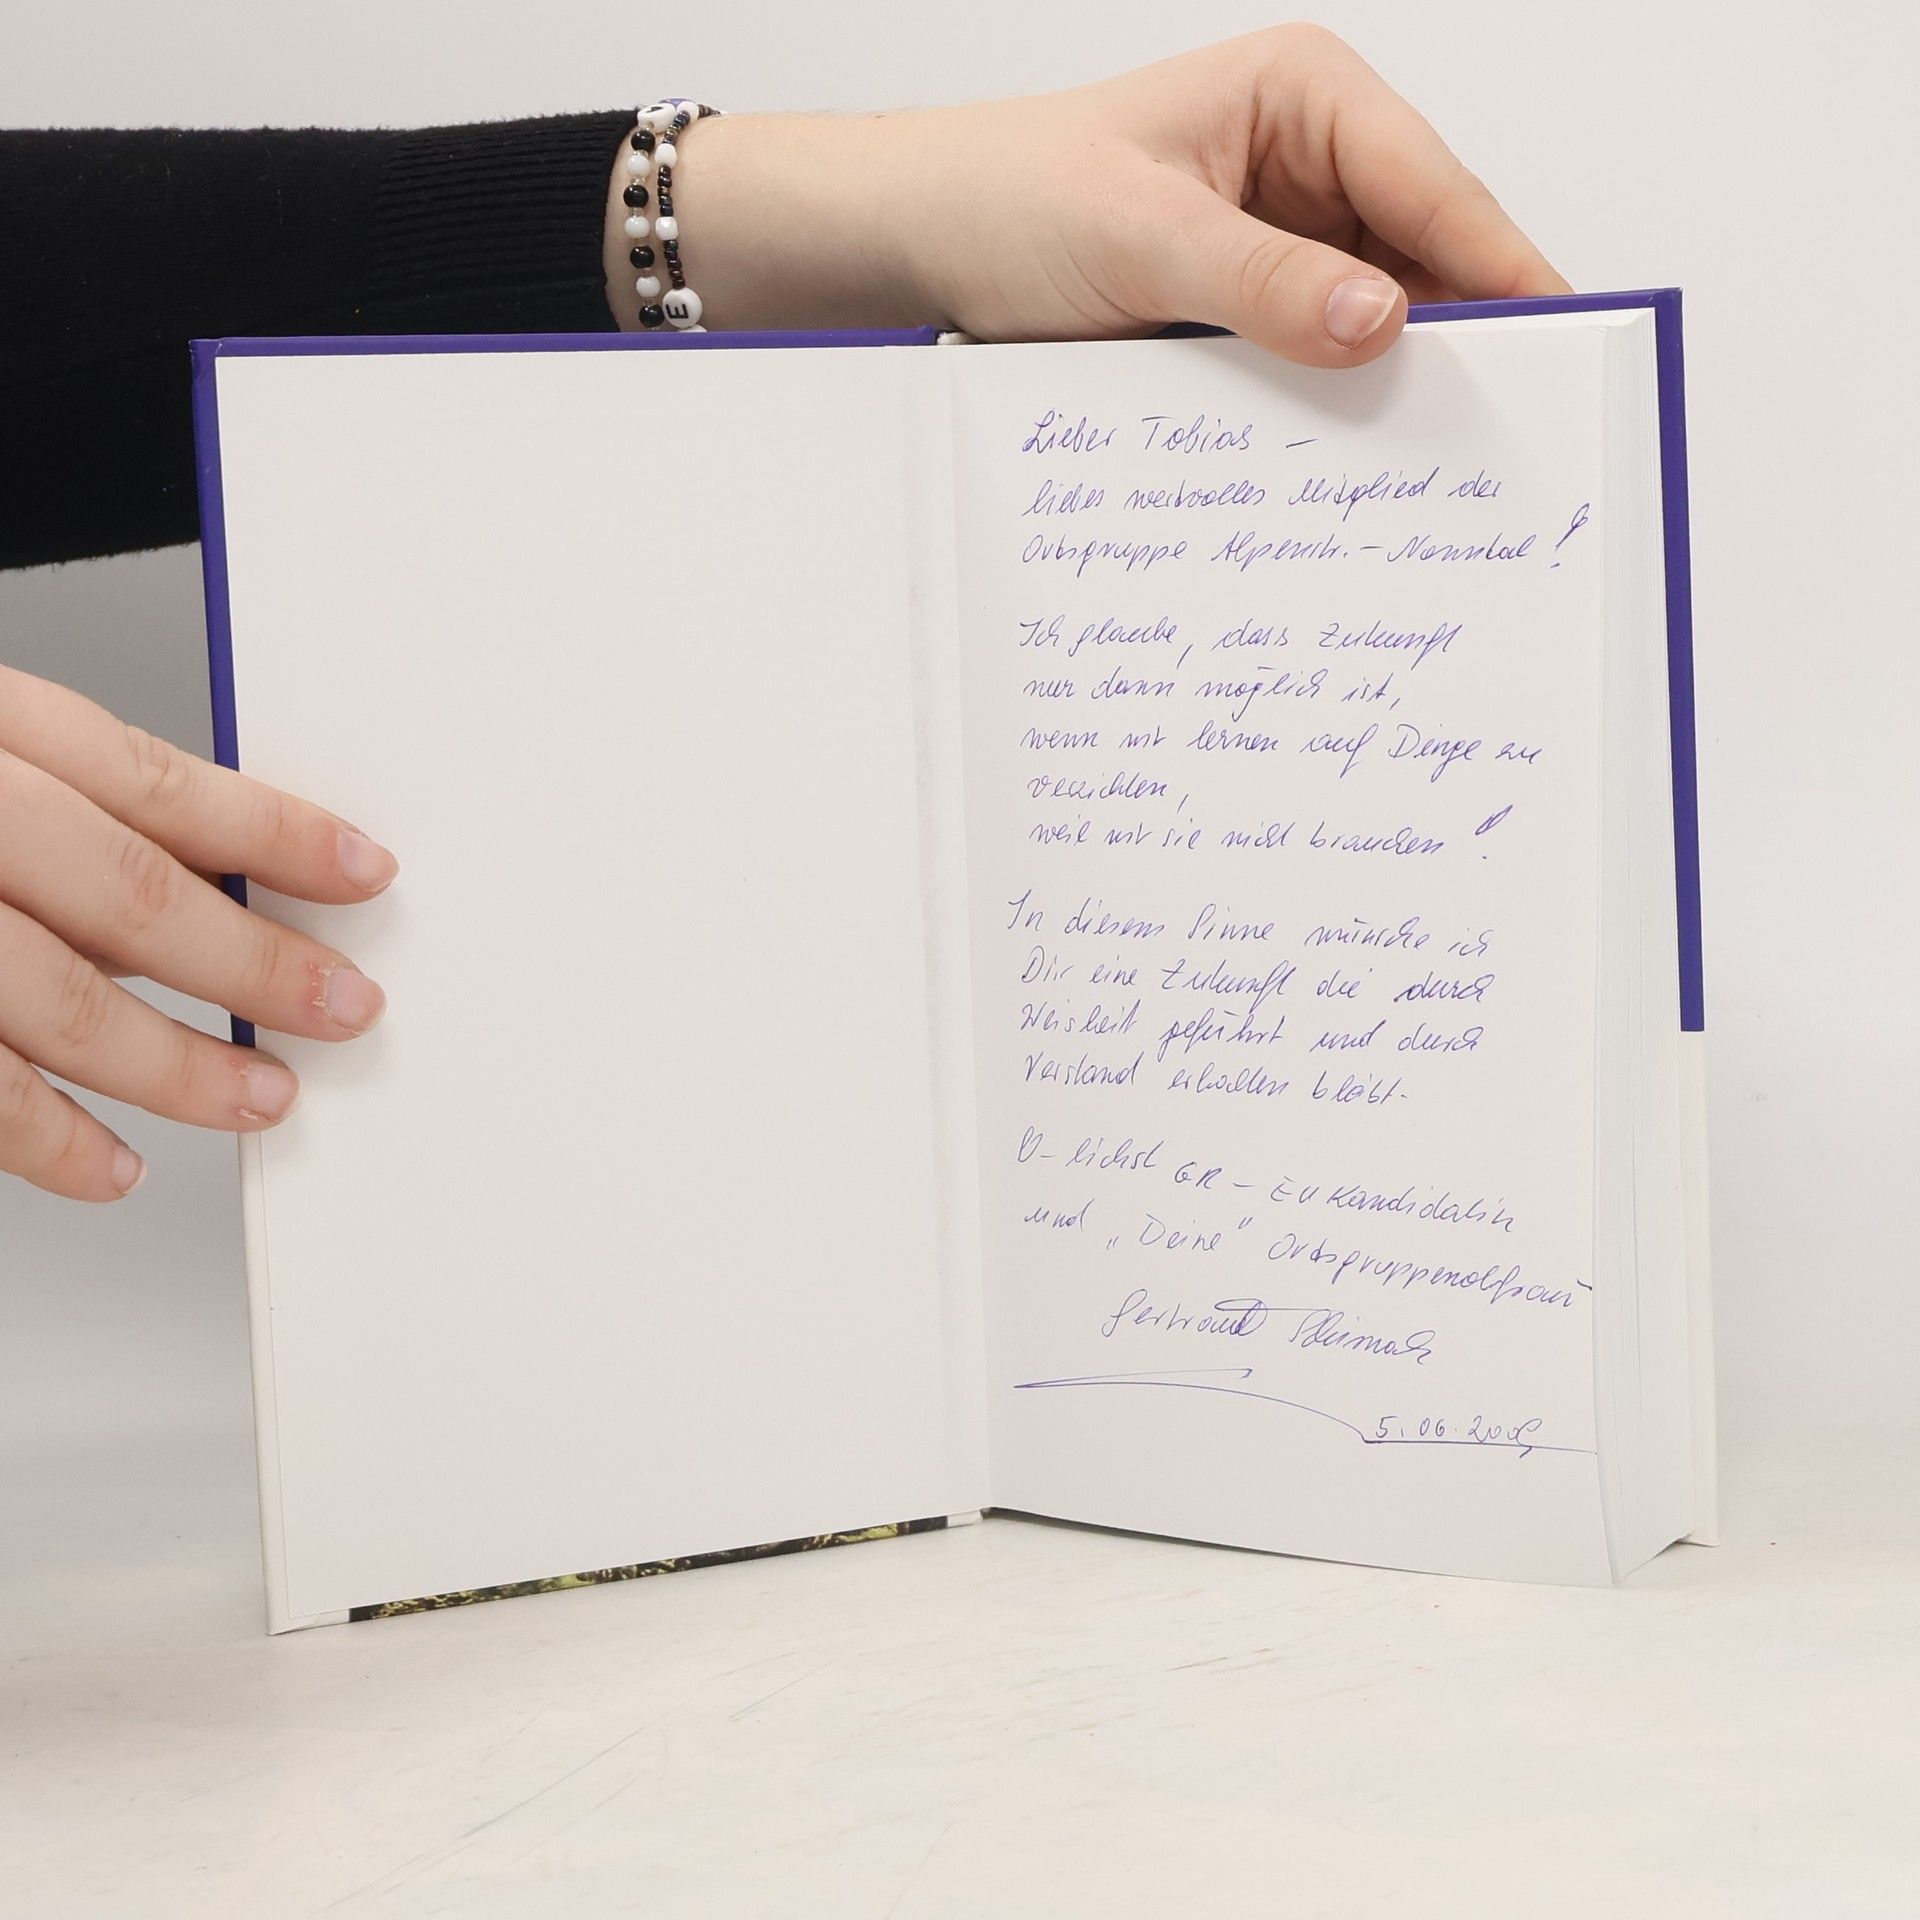 E
Lieber Tobias –
liebes wertvolles Mitglied der
Ortsgruppe Alpenstr. – Nonntal!
Ich glaube, dass Zukunft
nur dann möglich ist,
wenn wir lernen auf Dinge zu
verzichten,
weil wir sie nicht brauchen!
In diesem Sinne wünsche ich
Dir eine Zukunft die durch
Weisheit geführt und durch
Verstand erhalten bleibt.
lichst GR – EU Kandidatin
und „Deine" Ortsgruppenobfrau
Gertraud
5.06.2009